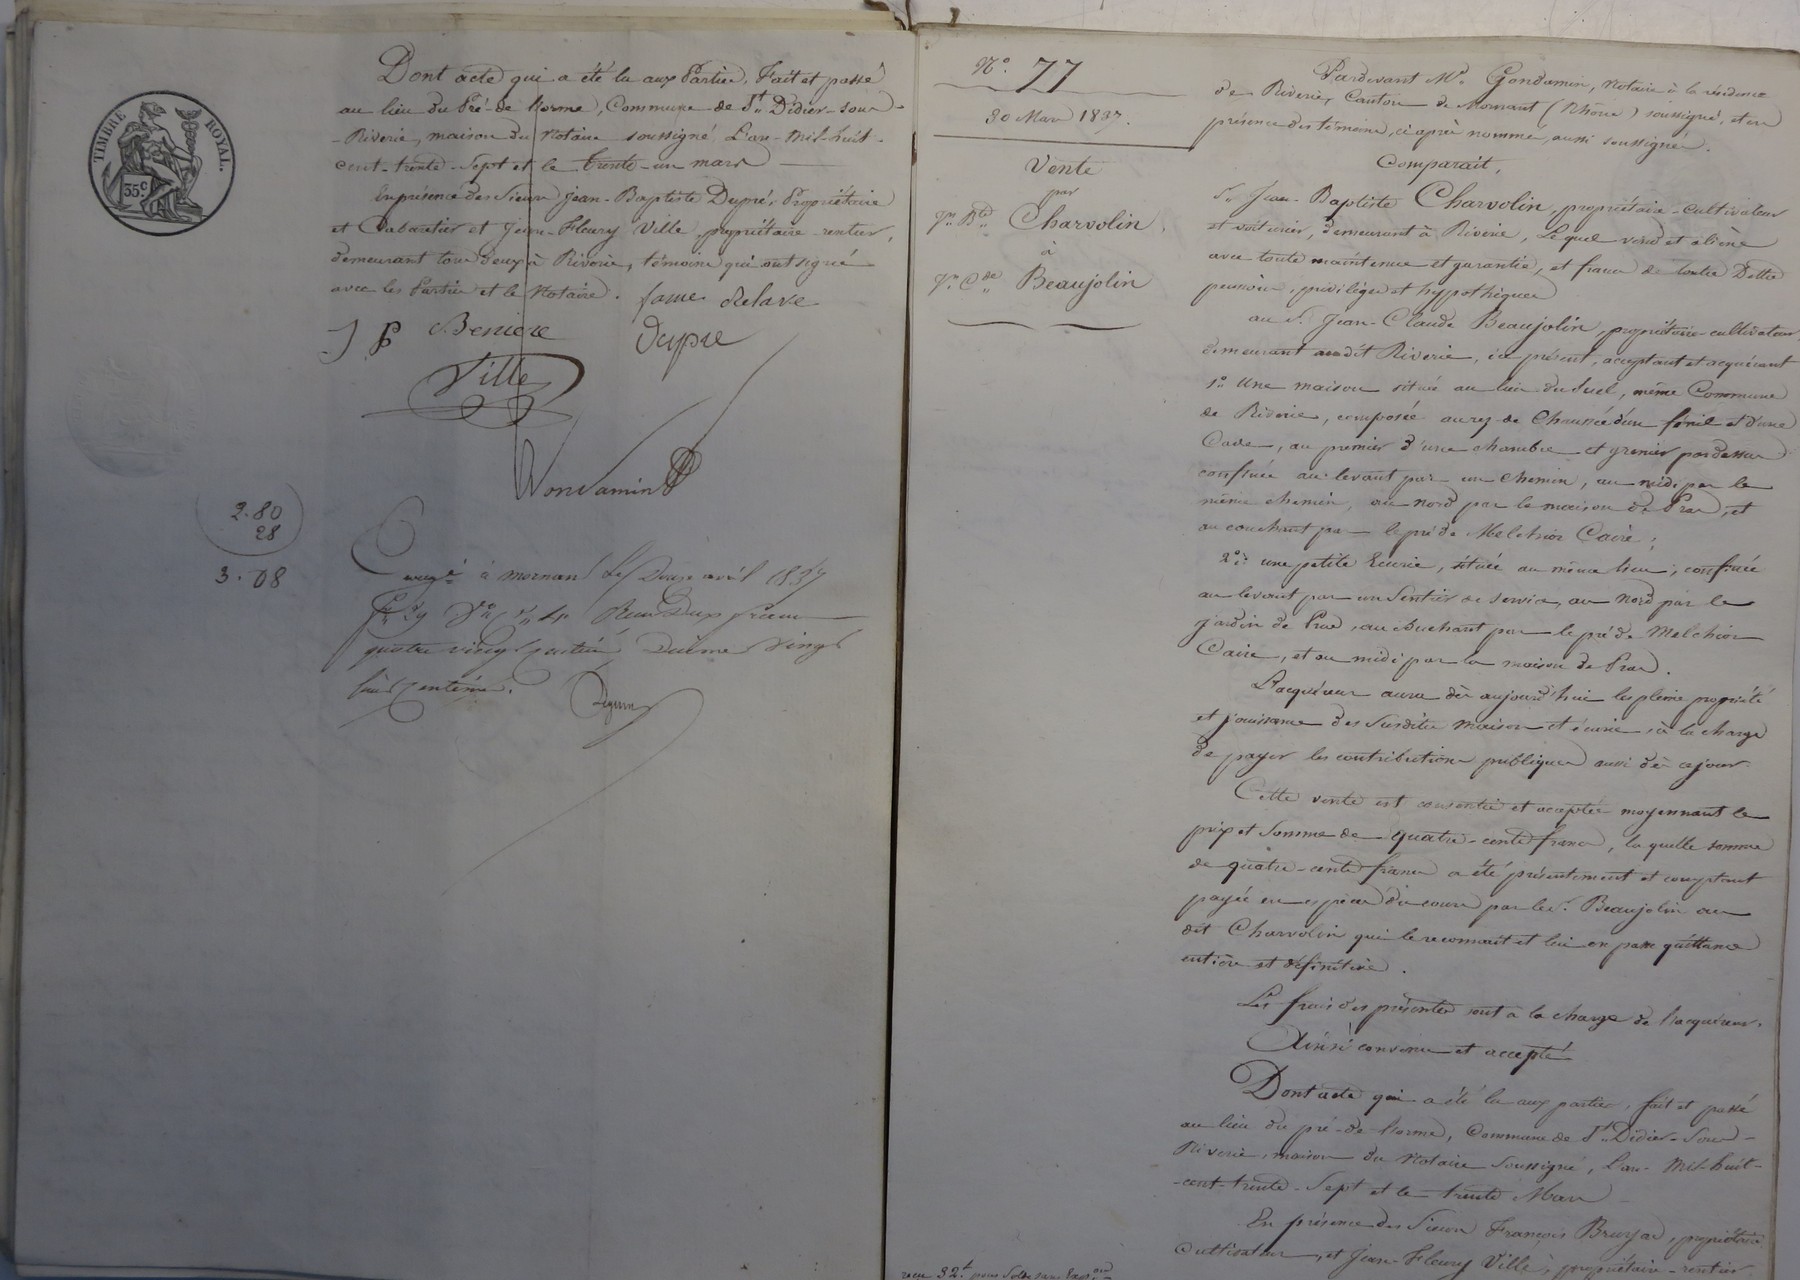 TIMBRE ROYAL.
35c
Dont acte qui a été lu aux Parties. Fait et passé
au lieu du Pré-de Lorme, Commune de St Didier-sous-
-Riverie, maison du Notaire soussigné L'an-mil-huit-
cent-trente-sept et le trente-un mars
En présence des Sieurs Jean-Baptiste Dupré, Propriétaire
et Cabaretier et Jean-Fleury Ville, propriétaire-rentier,
demeurant tous deux à Riverie, témoins qui ont signé
avec les Parties et le Notaire. fame delave
J P Beniere Dupre
Ville
Gondamin
2.80
28
3.08
à mornant Le Douze avril 1837
francs
quatre vingt centimes Dixime Vingt
huit centimes.
No. 77
30 Mars 1837.
Vente
par
Jn Bte Charvolin,
à
Jn Cde Beaujolin
Pardevant Me Gondamin, Notaire à la résidence
de Riverie, Canton de Mornant (Rhône) soussigné, et en
présence des témoins, ci après nommés, aussi soussignés.
Comparait,
Sr Jean-Baptiste Charvolin, propriétaire-cultivateur
et voiturier, demeurant à Riverie, Lequel vend et aliène
avec toute maintenue et garantie, et franc de toutes Dettes
pensions, privilèges et hypothèques
au Sr Jean-Claude Beaujolin, propriétaire-cultivateur
demeurant audit Riverie, ici présent, acceptant et acquérant
1° Une maison située au lieu du Suel, même Commune
de Riverie, composée au rez-de Chaussée d'un fénil et d'une
Cave, au premier d'une chambre et grenier par dessus
confinée au levant par un chemin, au midi par le
même chemin, au nord par la maison de Prad, et
au couchant par le pré de Melchior Caire;
2°: une petite Ecurie, située au même lieu; confinée
au levant par un Sentier de service, au Nord par le
jardin de Prad, au Couchant par le pré de Melchior
Caire, et au midi par la maison de Prad.
L'acquéreur aura dès aujourd'hui les pleine propriété
et jouissance des susdites maison et écurie, à la charge
de payer les contributions publiques aussi dès ce jour.
Cette vente est consentie et acceptée moyennant le
prix et Somme de quatre-cents francs, laquelle somme
de quatre-cents francs a été présentement et comptant
payée en espèces du cours par le sr. Beaujolin au
dit Charvolin qui le reconnait et lui en passe quittance
entière et définitive.
Les frais des présentes sont à la charge de l'acquéreur.
Ainsi convenu et accepté
Dont acte qui a été lu aux parties, fait et passé
au lieu du pré-de-Lorme, Commune de St Didier-Sous-
Riverie, maison du Notaire soussigné, L'an-Mil-huit-
-cent-trente-Sept et le trente Mars
En présence des Sieurs François Bruyas, propriétaire
Cultivateur, et Jean-Fleury Ville, propriétaire-rentier